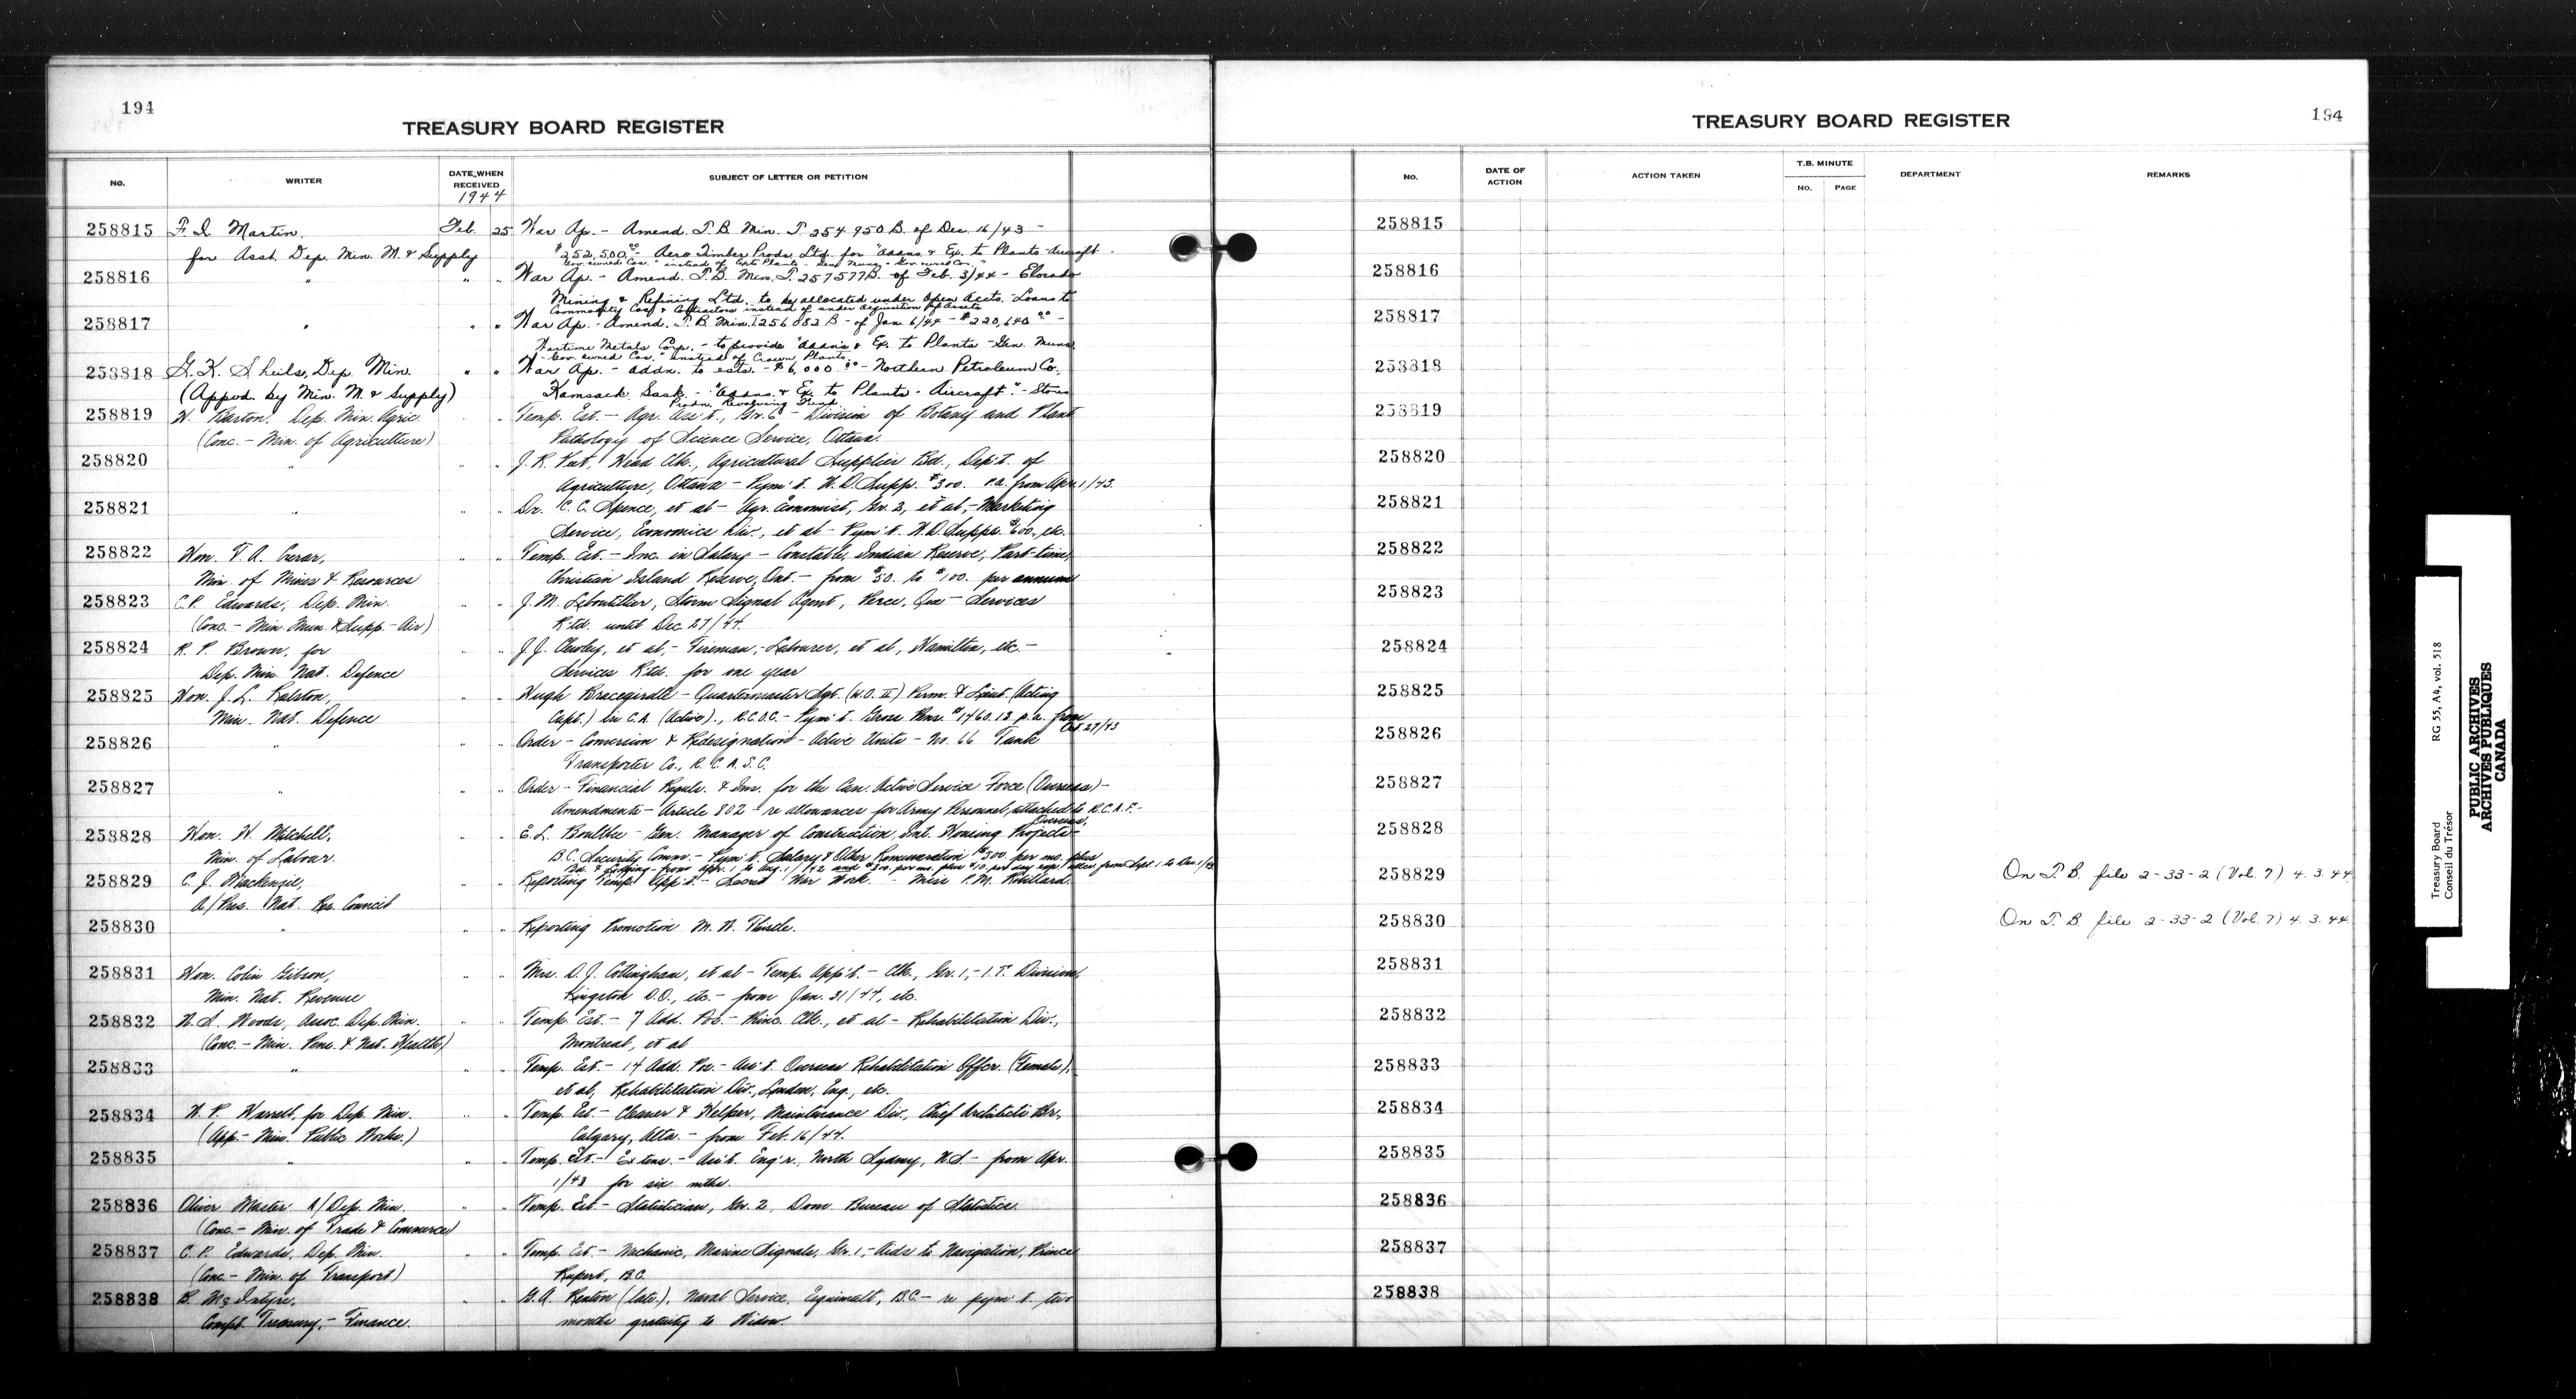 194
TREASURY BOARD REGISTER
NO.
WRITER
DATE WHEN RECEIVED
1944
SUBJECT OF LETTER OR PETITION
258815 F. I. Martin, Feb. 25 War Ap. - Amend. T.B. Min. T.254950B. of Dec. 16/43 -
for Asst. Dep. Min. M. & Supply $252,500.00 - Aero Timber Prods. Ltd. for "Addns. & Ex. to Plants - Aircraft -
Gov. owned Cos." instead of
258816 " " " War Ap. - Amend. T.B. Min. T.257577B. of Feb. 3/44 - Eldorado
Mining & Refining Ltd. to be allocated under Open Accts. - Loans to
Commodity Cos. & Contractors instead of under acquisition of Assets
258817 " " " War Ap. - Amend. T.B. Min. T256882B - of Jan. 6/44 - $220,640.00 -
Wartime Metals Corp. - to provide "Addns. & Ex. to Plants - Gen. Muns.
- Gov. owned Cos." instead of Crown Plants.
258818 G. K. Sheils, Dep. Min. " " War Ap. - addn. to ests. - $6,000.00 - Northern Petroleum Co.,
(Appvd. by Min. M. & Supply) Kamsack, Sask. - "Addns. & Ex. to Plants - Aircraft" - Stores
Prodn. Revolving Fund
258819 H. Barton, Dep. Min. Agric. " " Temp. Est. - Agr. Ass't., Gr. 6 - Division of Botany and Plant
(Conc. - Min. of Agriculture) Pathology of Science Service, Ottawa.
258820 " " " J. R. Peet, Head Clk., Agricultural Supplies Bd., Dep't. of
Agriculture, Ottawa - Pym't. W.D. Supp. $300. p.a. from Apr. 1/43.
258821 " " " Dr. C. C. Spence, et al - Agr. Economist, Gr. 2, et al, - Marketing
Service, Economics Div., et al - Pym't. W.D. Supps. $600., etc.
258822 Hon. T. A. Crerar, " " Temp. Est. - Inc. in Salary - Constable, Indian Reserve, Part-time,
Min. of Mines & Resources Christian Island Reserve, Ont. - from $50. to $100. per annum
258823 C. P. Edwards, Dep. Min. " " J. M. Leboutillier, Storm Signal Agent, Perce, Que - Services
(Conc. - Min. Mun. & Supp. - Air) R'td. until Dec. 27/44.
258824 R. P. Brown, for " " J. J. Cawley, et al, - Fireman, - Labourer, et al, Hamilton, etc. -
Dep. Min. Nat. Defence Services R'td. for one year
258825 Hon. J. L. Ralston, " " Hugh Bracegirdle - Quartermaster Sgt. (W.O. II) Perm. & Lieut. (Acting
Min. Nat. Defence Capt.) in C.A. (Active)., R.C.O.C. - Pym't. Gross Pens. $1460.13 p.a. from
Oct. 27/43
258826 " " " Order - Conversion & Redesignation - Active Units - No. 66 Tank
Transporter Co., R.C.A.S.C.
258827 " " " Order - Financial Regula. & Ins. for the Can. Active Service Force (Overseas) -
Amendments - Article 802 - re allowances for Army Personnel, attached to R.C.A.F. -
Overseas.
258828 Hon. H. Mitchell, " " E. L. Boultbee - Gen. Manager of Construction, Int. Housing Projects -
Min. of Labour. B.C. Security Comm. - Pym't. Salary & Other Remuneration $300. per mo. plus
Bd. & Lodging - from Apr. 1 to Aug. 1/42 and $300 per mo. plus $10 per day from Sept. 1 to Dec. 1/43
258829 C. J. Mackenzie, " " Reporting Temp. App't. - Secret War Work. - Miss P. M. Robillard.
A/Pres. Nat. Res. Council
258830 " " " Reporting Promotion M. W. Thistle.
258831 Hon. Colin Gibson, " " Mrs. D. J. Cottingham, et al - Temp. App't. - Clk., Gr. 1, - I.T. Division,
Min. Nat. Revenue Kingston D.O., etc. - from Jan. 31/44, etc.
258832 W. S. Woods, Assoc. Dep. Min. " " Temp. Est. - 7 Add. Pos. - Princ. Clk., et al - Rehabilitation Div.,
(Conc. - Min. Pens. & Nat. Health) Montreal, et al
258833 " " " Temp. Est. - 14 Add. Pos. - Ass't. Overseas Rehabilitation Officr. (Female),
et al, Rehabilitation Div., London, Eng., etc.
258834 W. P. Harrell, for Dep. Min. " " Temp. Est. - Cleaner & Helper, Maintenance Div., Chief Architects Br.,
(App. - Min. Public Works.) Calgary, Alta. - from Feb. 16/44.
258835 " " " Temp. Est. - Extens. - Ass't. Eng'r., North Sydney, N.S. - from Apr.
1/43 for six mths.
258836 Oliver Master A/Dep. Min. " " Temp. Est. - Statistician, Gr. 2, Dom. Bureau of Statistics.
(Conc. - Min. of Trade & Commerce)
258837 C. P. Edwards, Dep. Min. " " Temp. Est. - Mechanic, Marine Signals, Gr. 1, - Aids to Navigation, Prince
(Conc. - Min. of Transport) Rupert, B.C.
258838 B. McIntyre, " " G. A. Renton (late), Naval Service, Esquimalt, B.C. - re pym't. two
Compt. Treasury, - Finance. months gratuity to Widow.
TREASURY BOARD REGISTER
194
NO.
DATE OF ACTION
ACTION TAKEN
T.B. MINUTE
NO. PAGE
DEPARTMENT
REMARKS
258815
258816
258817
258818
258819
258820
258821
258822
258823
258824
258825
258826
258827
258828
258829 On T.B. file 2-33-2 (Vol. 7) 4.3.44
258830 On T.B. file 2-33-2 (Vol. 7) 4.3.44
258831
258832
258833
258834
258835
258836
258837
258838
Treasury Board RG 55, A4, vol. 518
Conseil du Trésor
PUBLIC ARCHIVES
ARCHIVES PUBLIQUES
CANADA